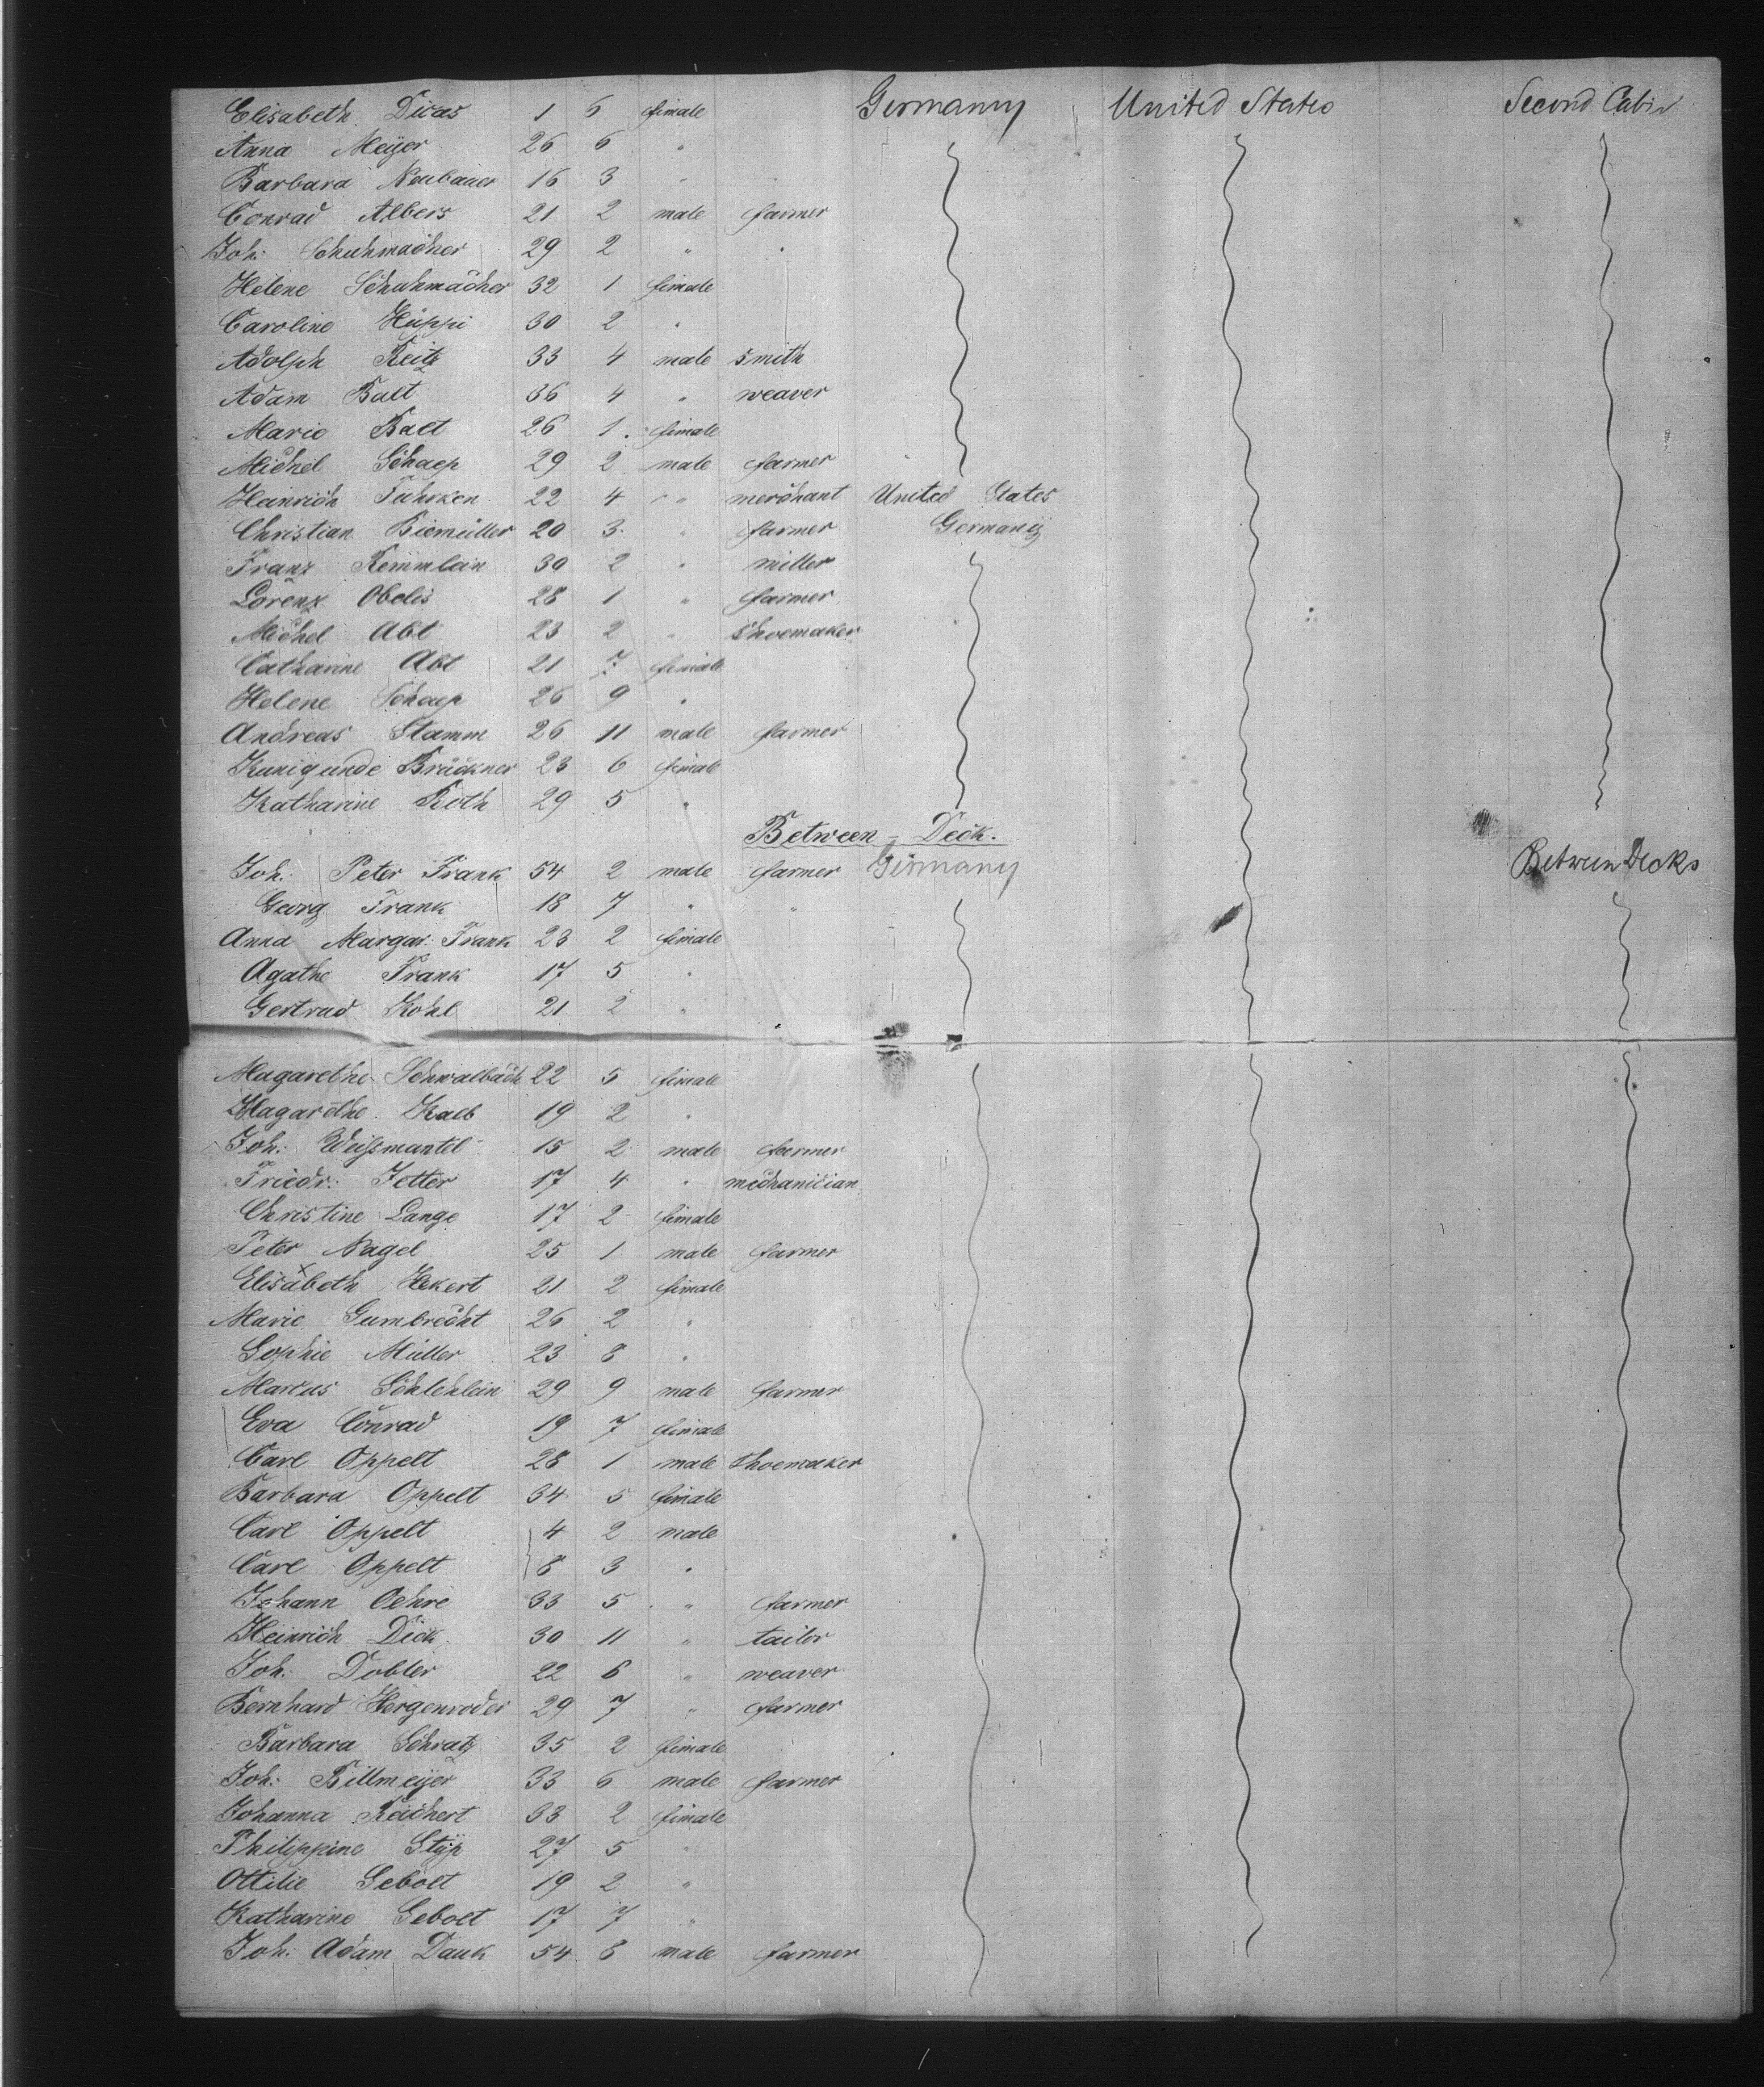 Elisabeth Dicas 1 6 fimale Germany United States Second Cabin
Anna Meÿer 26 6 "
Barbara Neubauer 16 3 "
Conrad Albers 21 2 male farmer
Joh: Schuhmacher 29 2 " "
Helene Schuhmacher 32 1 fimale
Caroline Hüppi 30 2 "
Adolph Reitz 33 4 male smith
Adam Balt 36 4 " weaver
Marie Balt 26 1 fimale
Michel Schaep 29 2 male farmer
Heinrich Führken 22 4 " merchant United States
Christian Biemüller 20 3 " farmer Germanÿ
Franz Kemmlein 30 2 " miller
Lorenz Obelis 28 1 " farmer
Michel Abt 23 2 " shoemaker
Catharine Abt 21 7 fimale
Helene Schaep 26 9 "
Andreas Stamm 26 11 male farmer
Kunigunde Brückner 23 6 fimale
Katharine Roth 29 5 "
Between - Deck.
Joh: Peter Frank 54 2 male farmer Germany Between Decks
Georg Frank 18 7 " "
Anna Margar: Frank 23 2 fimale
Agathe Frank 17 5 "
Gertrud Kohl 21 2 "
Magarethe Schwalbach 22 5 fimale
Magarethe Kalb 19 2 "
Joh: Weißmantel 15 2 male farmer
Friedr: Jetter 17 4 " mechanician
Christine Lange 17 2 fimale
Peter Nagel 25 1 male farmer
Elisabeth Hekert 21 2 fimale
Marie Gumbrecht 26 2 "
Sophie Müller 23 8 "
Marcus Schlehlein 29 9 male farmer
Eva Conrad 19 7 fimale
Carl Oppelt 28 1 male shoemaker
Barbara Oppelt 34 5 fimale
Carl Oppelt 4 2 male
Carl Oppelt 8 3 "
Johann Oehre 33 5 " farmer
Heinrich Dick 30 11 " tailor
Joh: Dobler 22 6 " weaver
Bernhard Hergenroder 29 7 " farmer
Barbara Schratz 35 2 fimale
Joh: Billmeÿer 33 6 male farmer
Johanna Reichert 63 2 fimale
Philippine Stÿp 27 5 "
Ottilie Sebolt 19 2 "
Katharine Sebolt 17 7 "
Joh: Adam Dauk 54 8 male farmer